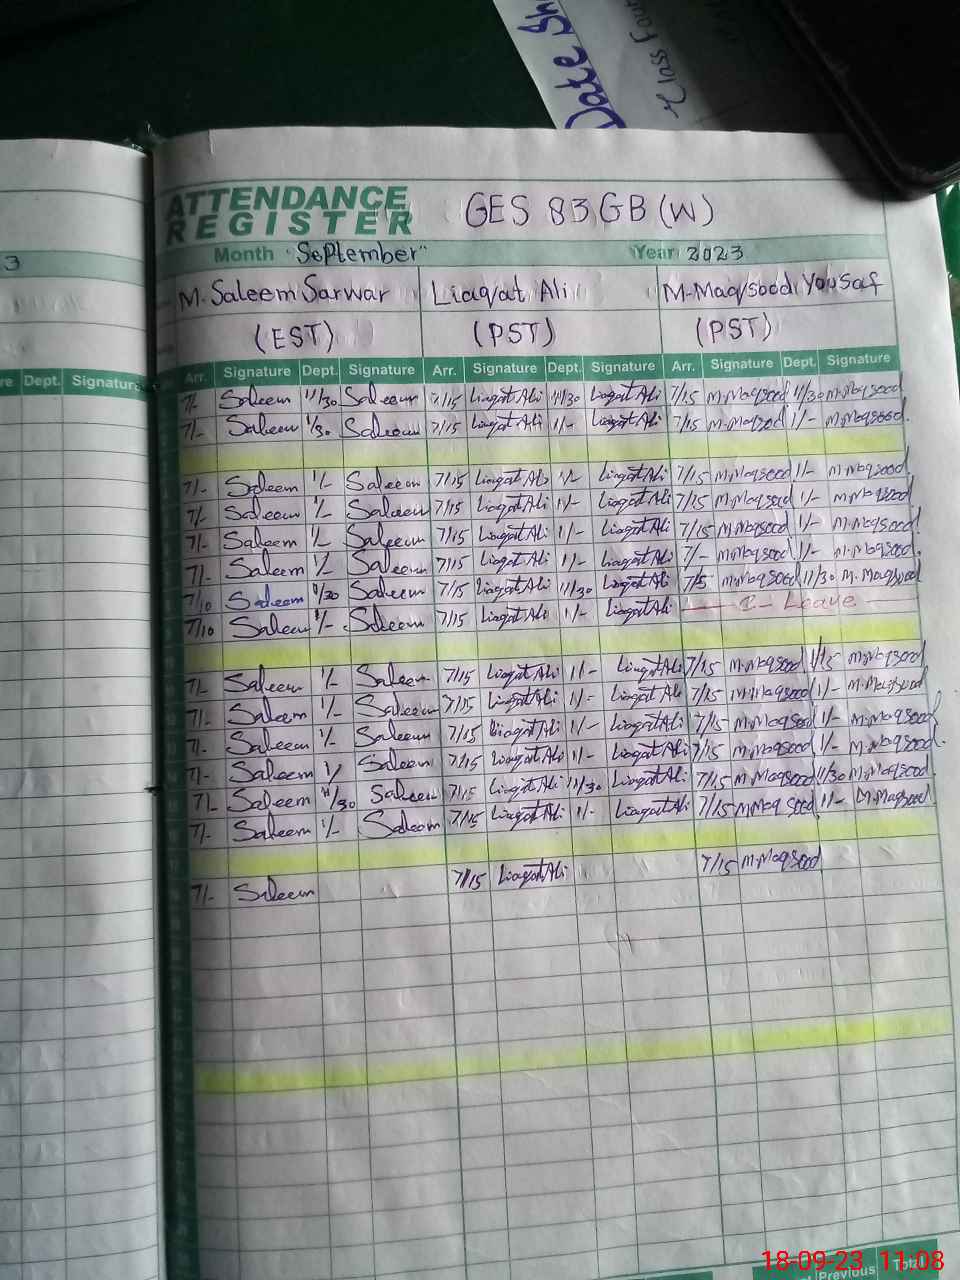 Date Sh
Class Four
ATTENDANCE
REGISTER
GES 83 GB (W)
3
Month "September" Year 2023
M. Saleem Sarwar Liaqat Ali M. Maqsood Yousaf
(EST) (PST) (PST)
re Dept. Signature Arr. Signature Dept. Signature Arr. Signature Dept. Signature Arr. Signature Dept. Signature
7/- Saleem 11/30 Saleem 7/15 Liaqat Ali 11/30 Liaqat Ali 7/15 M.Maqsood 11/30 M.Maqsood
7/- Saleem Saleem 7/15 Liaqat Ali 1/- Liaqat Ali 7/15 M.Maqsood 1/- M.Maqsood
7/- Saleem 1/- Saleem 7/15 Liaqat Ali 1/- Liaqat Ali 7/15 M.Maqsood 1/- M.Maqsood
7/- Saleem 1/- Saleem 7/15 Liaqat Ali 1/- Liaqat Ali 7/15 M.Maqsood 1/- M.Maqsood
7/- Saleem 1/- Saleem 7/15 Liaqat Ali 1/- Liaqat Ali 7/15 M.Maqsood 1/- M.Maqsood
7/- Saleem 1/- Saleem 7/15 Liaqat Ali 1/- Liaqat Ali 7/- M.Maqsood 1/- M.Maqsood
7/10 Saleem 11/30 Saleem 7/15 Liaqat Ali 11/30 Liaqat Ali 7/15 M.Maqsood 11/30 M.Maqsood
7/10 Saleem 1/- Saleem 7/15 Liaqat Ali 1/- Liaqat Ali Leave
7/- Saleem 1/- Saleem 7/15 Liaqat Ali 1/- Liaqat Ali 7/15 M.Maqsood 1/15 M.Maqsood
7/- Saleem 1/- Saleem 7/15 Liaqat Ali 1/- Liaqat Ali 7/15 M.Maqsood 1/- M.Maqsood
7/- Saleem 1/- Saleem 7/15 Liaqat Ali 1/- Liaqat Ali 7/15 M.Maqsood 1/- M.Maqsood
7/- Saleem 1/- Saleem 7/15 Liaqat Ali 1/- Liaqat Ali 7/15 M.Maqsood 1/- M.Maqsood
7/- Saleem 11/30 Saleem 7/15 Liaqat Ali 11/30 Liaqat Ali 7/15 M.Maqsood 11/30 M.Maqsood
7/- Saleem 1/- Saleem 7/15 Liaqat Ali 1/- Liaqat Ali 7/15 M.Maqsood 1/- M.Maqsood
7/- Saleem 7/15 Liaqat Ali 7/15 M.Maqsood
Previous Total
18-09-23 11:08